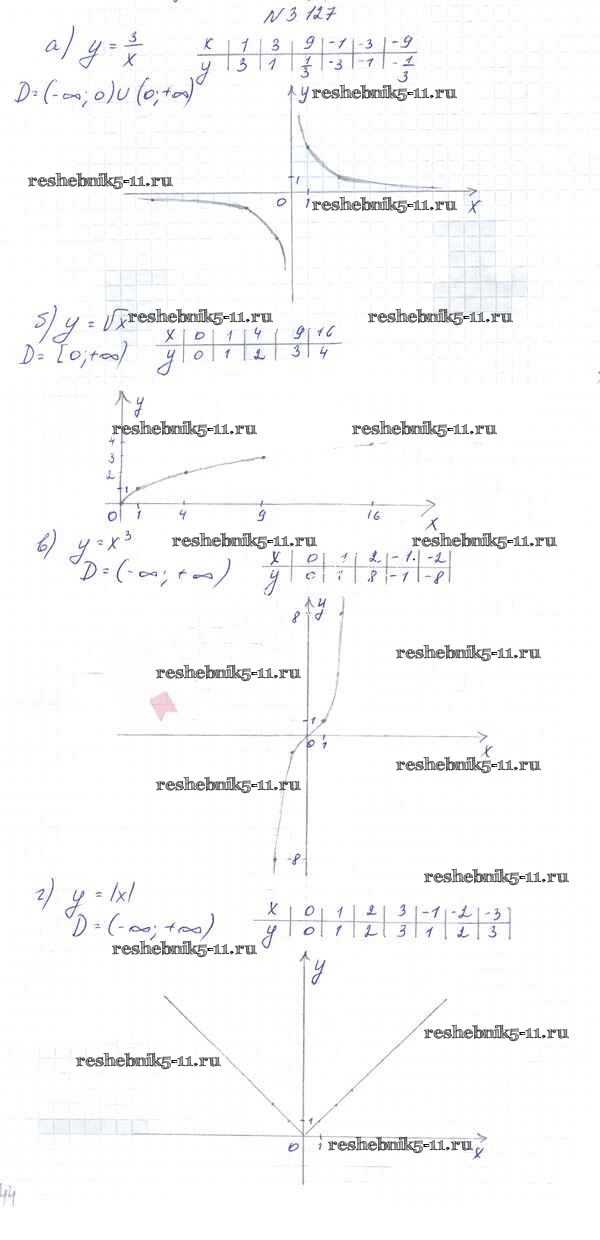 N 3 127
а) y = 3/x
x | 1 | 3 | 9 | -1 | -3 | -9
y | 3 | 1 | 1/3 | -3 | -1 | -1/3
D = (-∞; 0) ∪ (0; +∞)
y reshebnik5-11.ru
reshebnik5-11.ru
1
0 1 reshebnik5-11.ru x
б) y = √x reshebnik5-11.ru reshebnik5-11.ru
D = [0; +∞)
x | 0 | 1 | 4 | 9 | 16
y | 0 | 1 | 2 | 3 | 4
y
reshebnik5-11.ru reshebnik5-11.ru
4
3
2
1
0 1 4 9 16 x
в) y = x³ reshebnik5-11.ru reshebnik5-11.ru
D = (-∞; +∞)
x | 0 | 1 | 2 | -1 | -2
y | 0 | 1 | 8 | -1 | -8
8 y
reshebnik5-11.ru
reshebnik5-11.ru
1
0 1 x
reshebnik5-11.ru
reshebnik5-11.ru
-8
reshebnik5-11.ru
г) y = |x|
D = (-∞; +∞)
x | 0 | 1 | 2 | 3 | -1 | -2 | -3
y | 0 | 1 | 2 | 3 | 1 | 2 | 3
reshebnik5-11.ru
y
reshebnik5-11.ru
reshebnik5-11.ru
1
0 1 reshebnik5-11.ru x
44